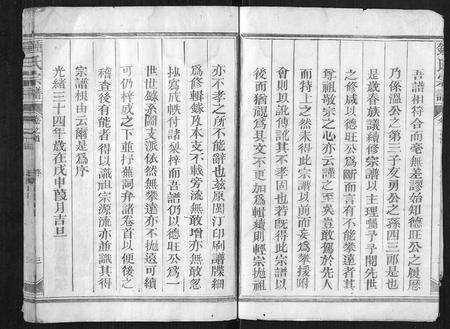 吾譜相符合而毫無差謬始知德旺公之履歷
乃係溫公之第三子友勇公之孫四三郎是也
是歲春族議續修宗譜以主理囑予予閱先世
之修咸以德旺公爲斷而言有不能攀遠者其
尊祖敬宗之心亦云謹之至矣豈敢獨於先人
而特上之然未得此宗譜以前而妄爲攀援附
會則以訛傳訛其不孝固也若既得此宗譜以
後而猶視爲具文不更加爲輯續則輕宗拋祖
亦不孝之所不能辭也茲原閩汀印刷譜牒細
爲修輯錄及本支不載旁流無敢增亦無敢忽
抄寫成帙付諸製梓而吾譜仍以德旺公爲一
世世錄承圖支派依然無攀遠亦不拋遠可續
可仍梓成之下並抒蕪詞弁諸卷首以便後之
稽查後有能者得以識祖宗源流亦並識其得
宗譜根由云爾是爲序
光緒三十四年歲在戊申葭月吉旦